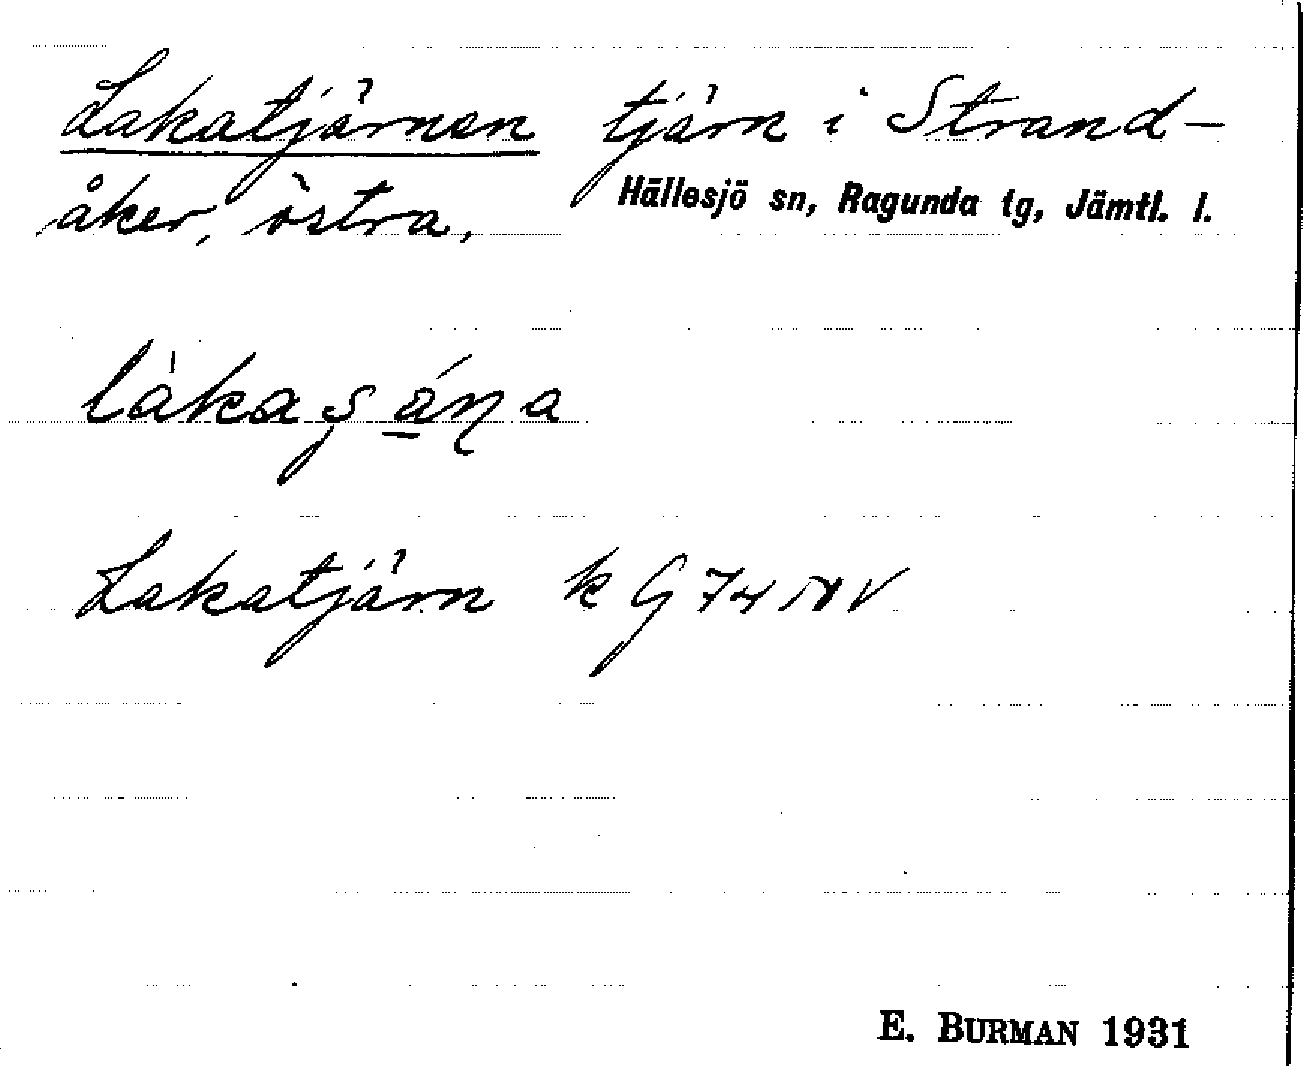 Lakatjärnen tjärn i Strand-
åker, östra,
Hällesjö sn, Ragunda tg, Jämtl. l.
Lakatjärn k G 74 NV
E. BURMAN 1931